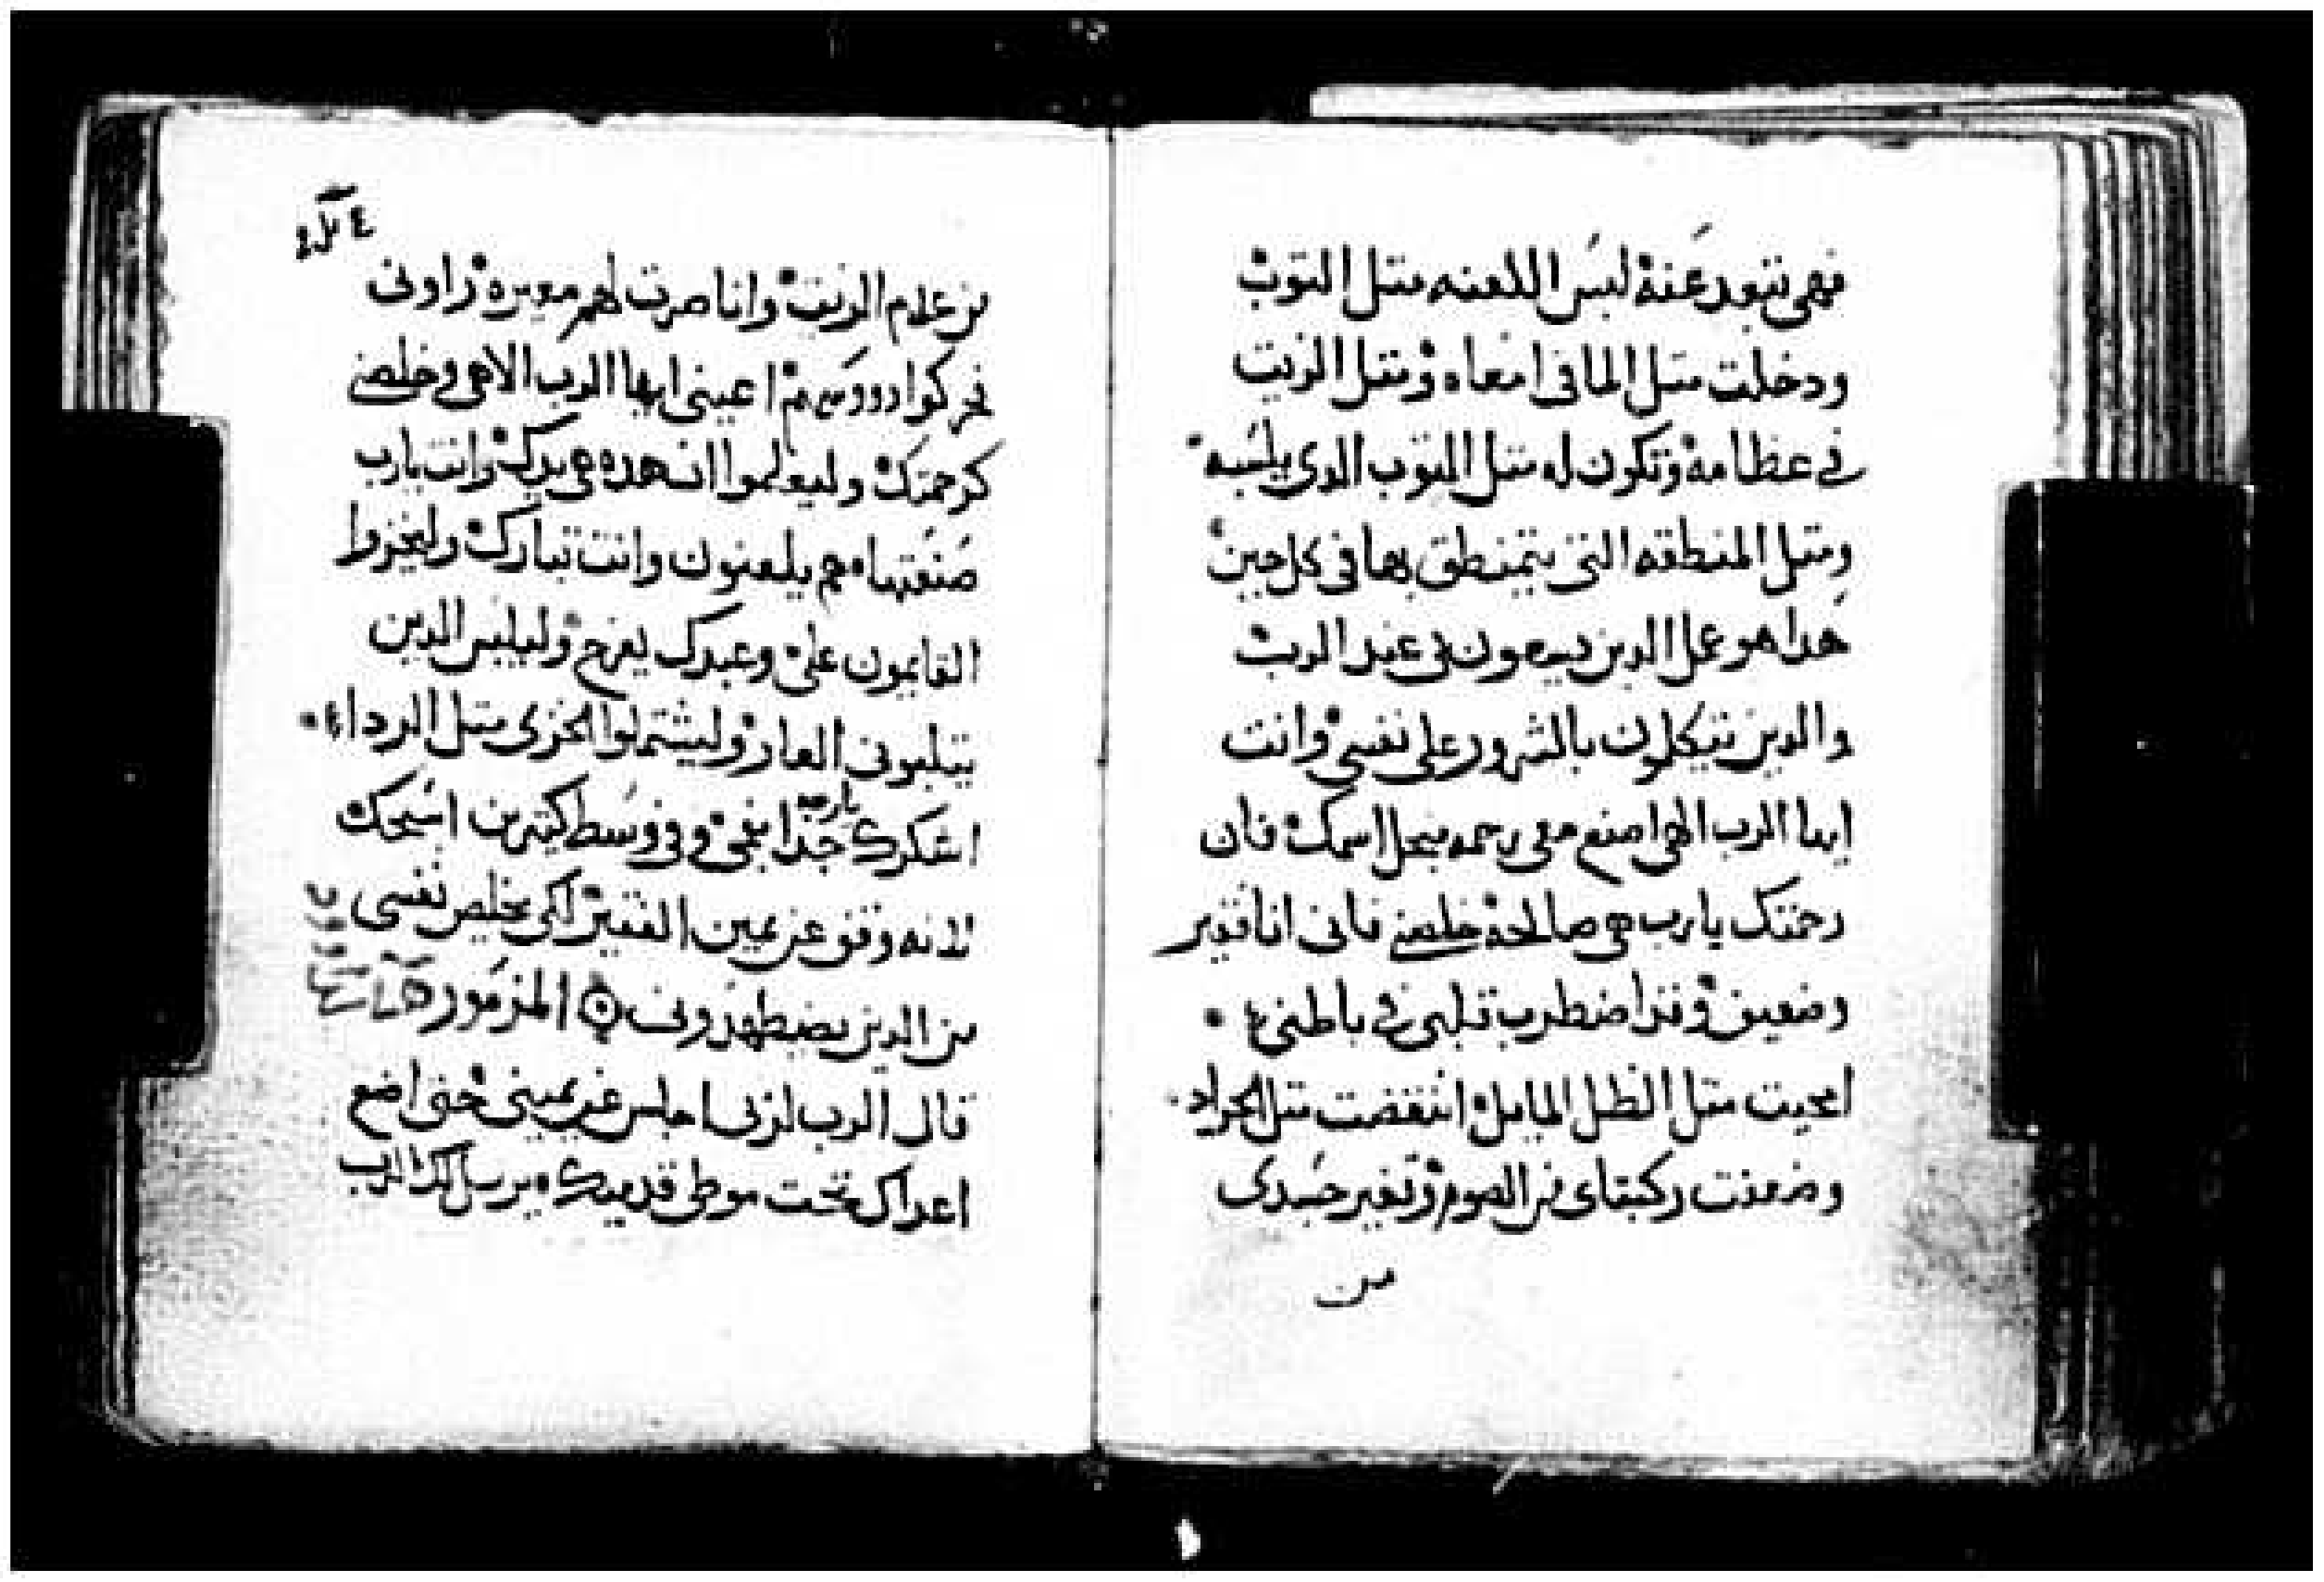 فهي تتبعد عنه لبس اللعنه متل التوب
ودخلت متل الما في امعاه ومتل الزيت
في عظامه وتكون له متل التوب الدي يلبسه
ومتل المنطقه التي يتمنطق بها في كل حين
هدا هو عمل الدين يسعون بي عند الرب
والدين يتكلمون بالشرور على نفسي وانت
ايها الرب الهي اصنع معي رحمه من اجل اسمك فان
رحمتك يارب هي صالحه خلصني فاني انا فقير
وضعيف وقد اضطرب قلبي في باطني
امحيت متل الظل المايل انتفضت متل الجراد
وضعفت ركبتاي من الصوم وتغير جسدي
من
من عدم الزيت وانا صرت لهم معيره راوني
حركوا رووسهم اعيني ايها الرب الاهي وخلصني
كرحمتك وليعلموا ان هده هي يدك وانت يارب
صنعتها هم يلعنون وانت تبارك وليخزوا
القايمون علي وعبدك يفرح وليلبس الدين
يتلبوني العار وليشتملوا الخزي متل الردا
اشكرك يارب جدا بفمي وفي وسط كتيرين اسبحك
لانه وقف عن يمين الفقير لكي يخلص نفسي
من الدين يضطهدوني المزمور
قال الرب لربي اجلس عن يميني حتى اضع
اعداك تحت موطى قدميك يرسل لك الرب